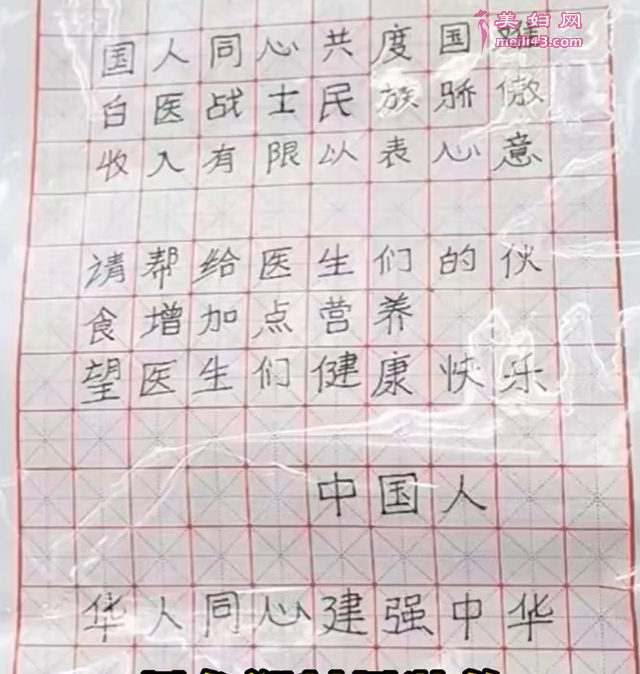 美妇网
meili43.com
国人同心共度国难
白医战士民族骄傲
收入有限以表心意
请帮给医生们的伙
食增加点营养
望医生们健康快乐
中国人
华人同心建强中华